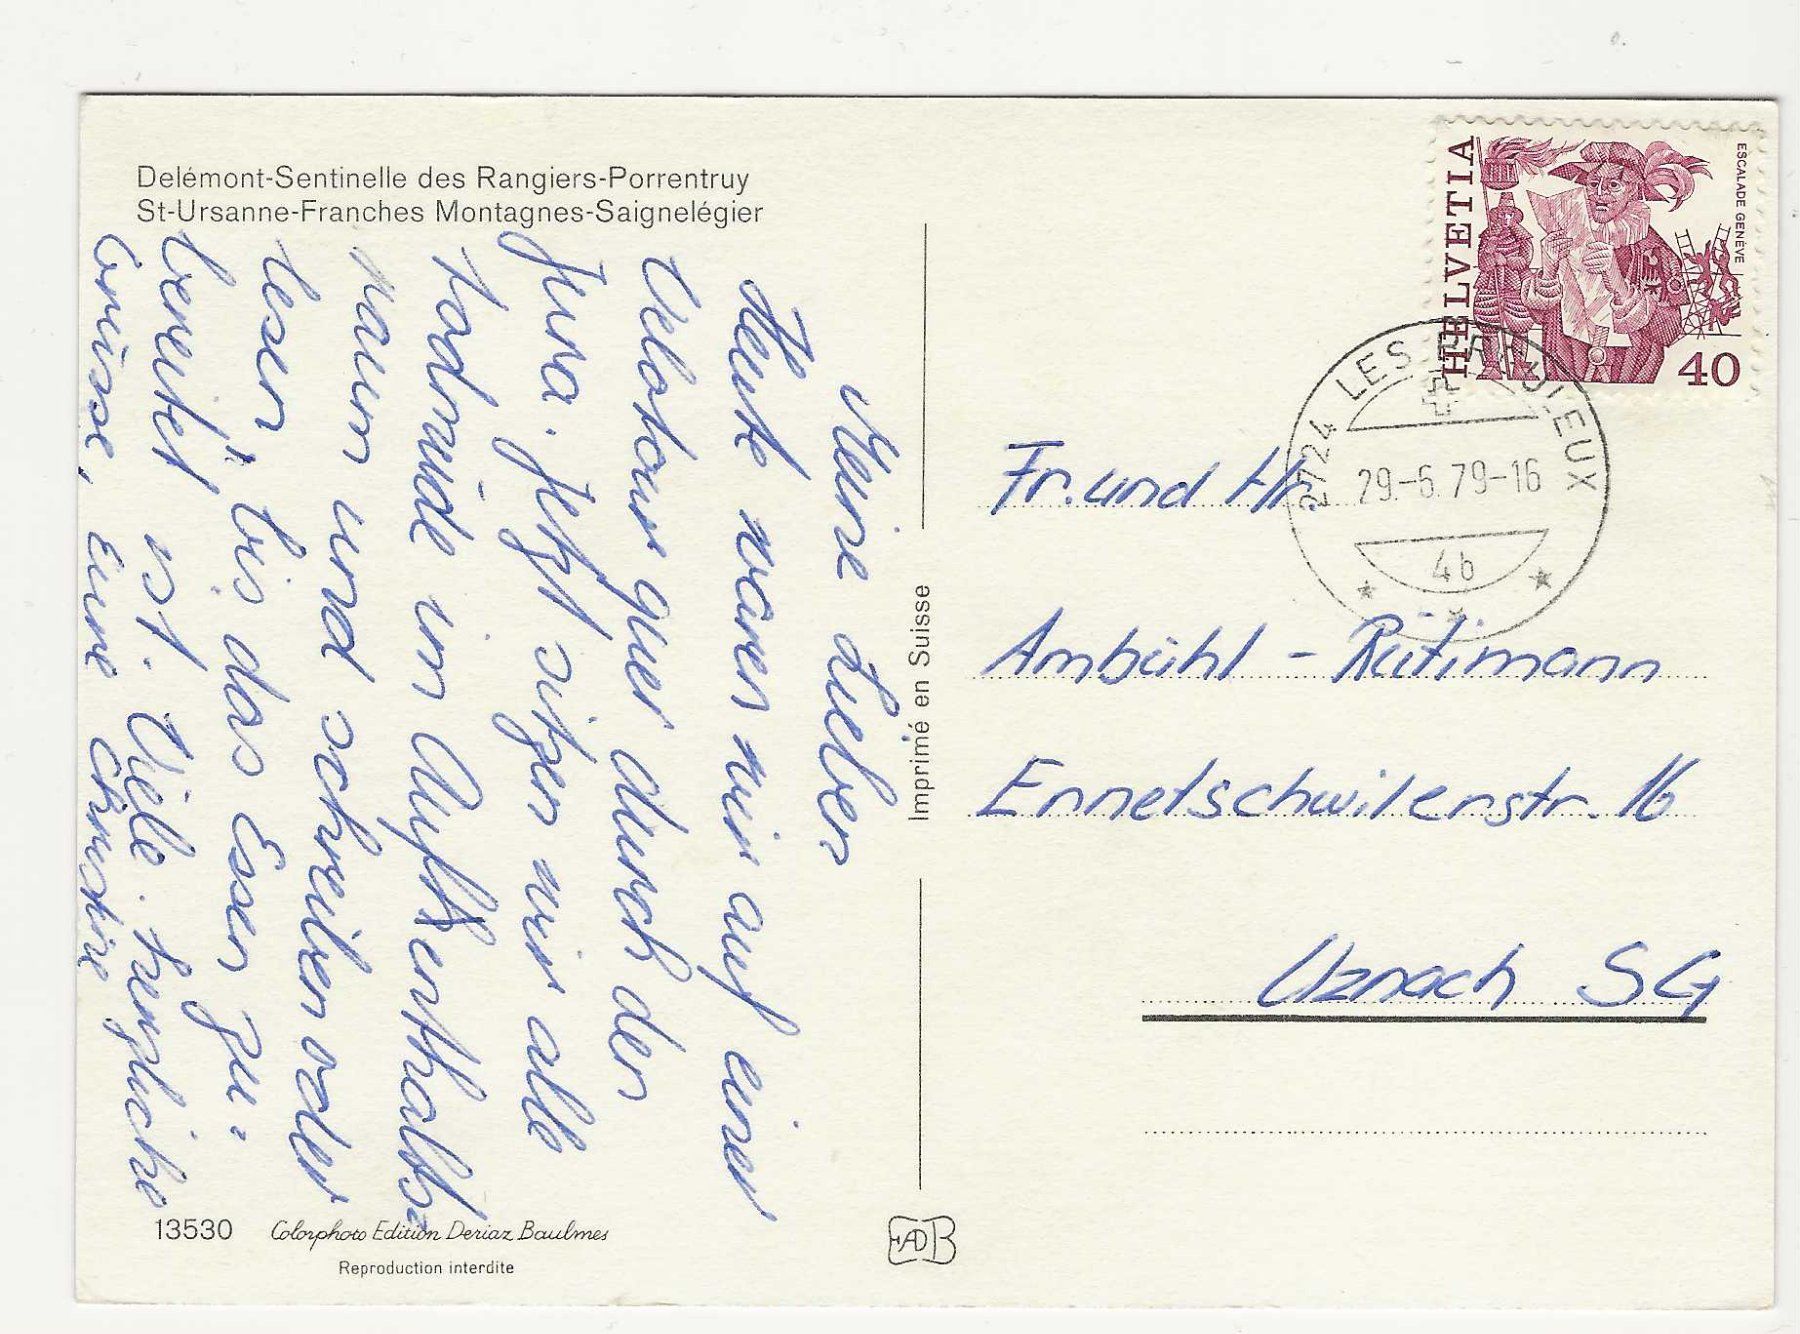 Delémont-Sentinelle des Rangiers-Porrentruy
St-Ursanne-Franches Montagnes-Saignelégier
Meine Lieben
Heute waren wir auf einer
Velotour quer durch den
Jura. Jetzt sitzen wir alle
todmüde im Aufenthalts-
raum und schreiben oder
lesen, bis das Essen zu-
bereitet ist. Viele herzliche
Grüsse, Eure Christine
13530 Colorphoto Edition Deriaz Baulmes
Reproduction interdite
Imprimé en Suisse
EADB
HELVETIA
ESCALADE GENÈVE
40
2724 LES BREULEUX
29.-6.79-16
4b
Fr. und Hr.
Ambühl - Rütimann
Ennetschwilerstr. 16
Uznach SG